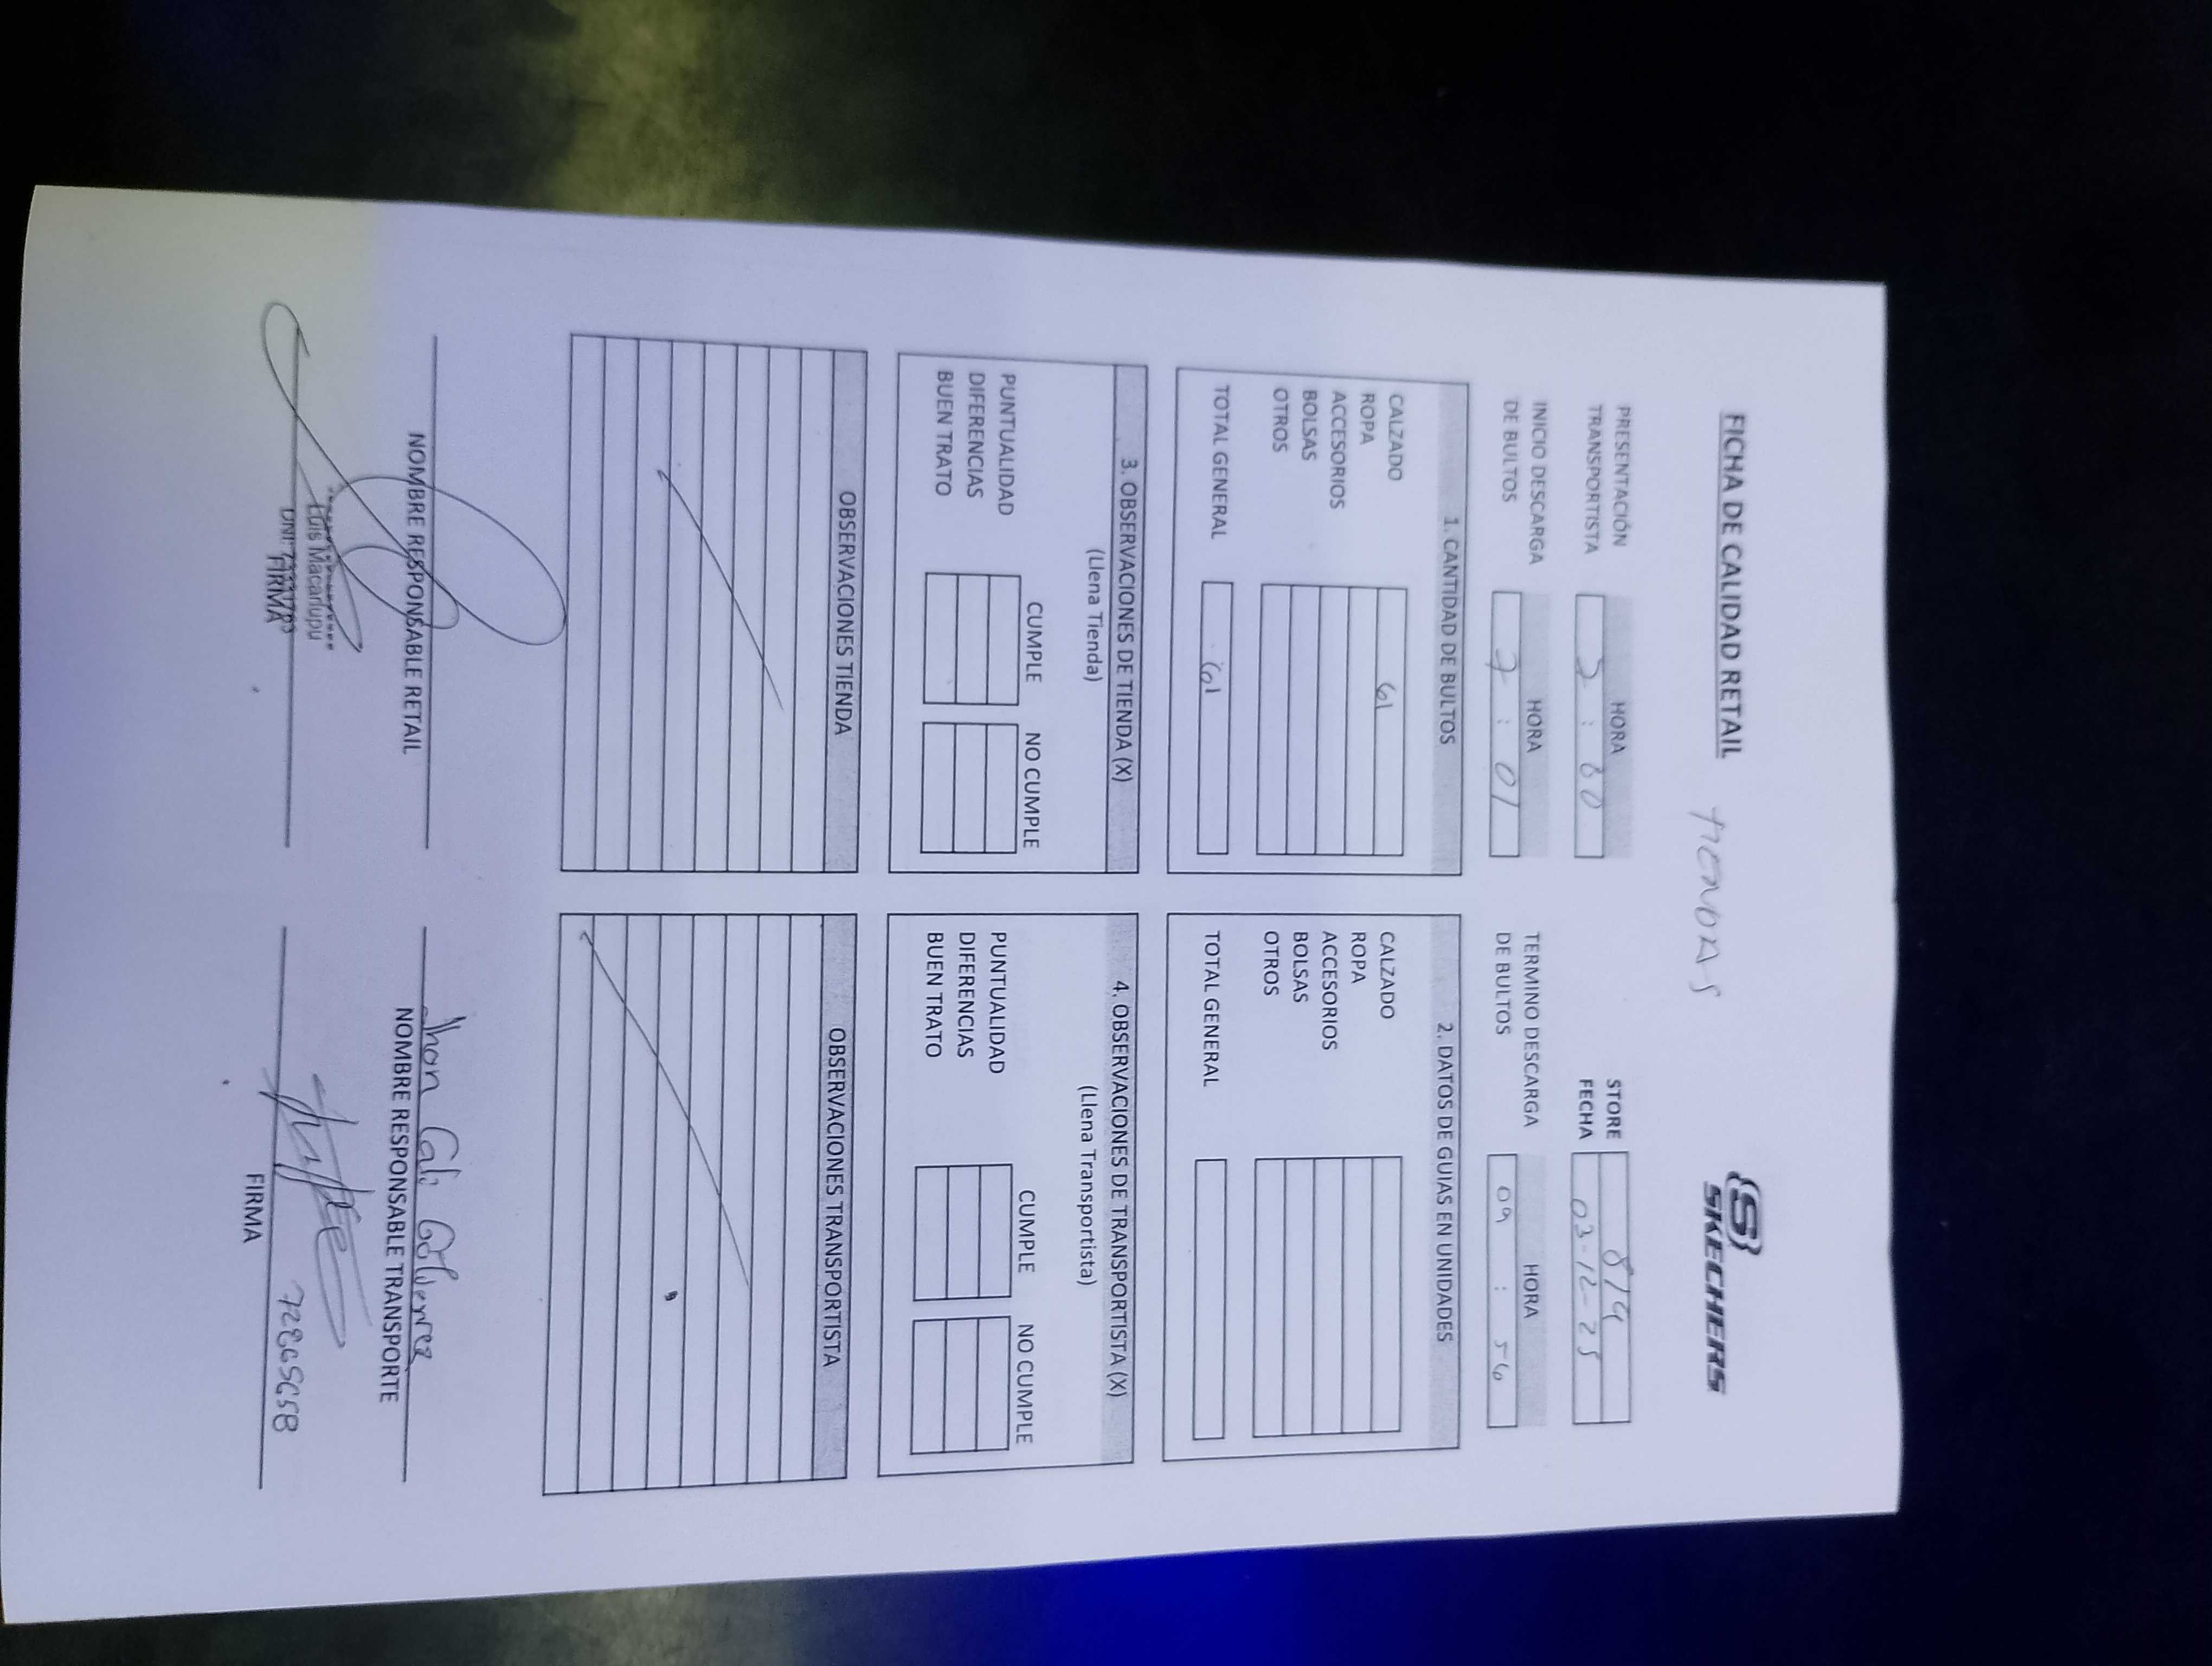 FICHA DE CALIDAD RETAIL
TIENDAS
SKECHERS
STORE 819
FECHA 03-12-25
PRESENTACIÓN TRANSPORTISTA
HORA
INICIO DESCARGA DE BULTOS
HORA
: 01
TERMINO DESCARGA DE BULTOS
HORA
09 : 56
1. CANTIDAD DE BULTOS
CALZADO 61
ROPA
ACCESORIOS
BOLSAS
OTROS
TOTAL GENERAL 61
2. DATOS DE GUIAS EN UNIDADES
CALZADO
ROPA
ACCESORIOS
BOLSAS
OTROS
TOTAL GENERAL
3. OBSERVACIONES DE TIENDA (X)
(Llena Tienda)
CUMPLE NO CUMPLE
PUNTUALIDAD
DIFERENCIAS
BUEN TRATO
4. OBSERVACIONES DE TRANSPORTISTA (X)
(Llena Transportista)
CUMPLE NO CUMPLE
PUNTUALIDAD
DIFERENCIAS
BUEN TRATO
OBSERVACIONES TIENDA
OBSERVACIONES TRANSPORTISTA
NOMBRE RESPONSABLE RETAIL
Luis Macarlupu
DNI:
FIRMA
Jhon
NOMBRE RESPONSABLE TRANSPORTE
FIRMA